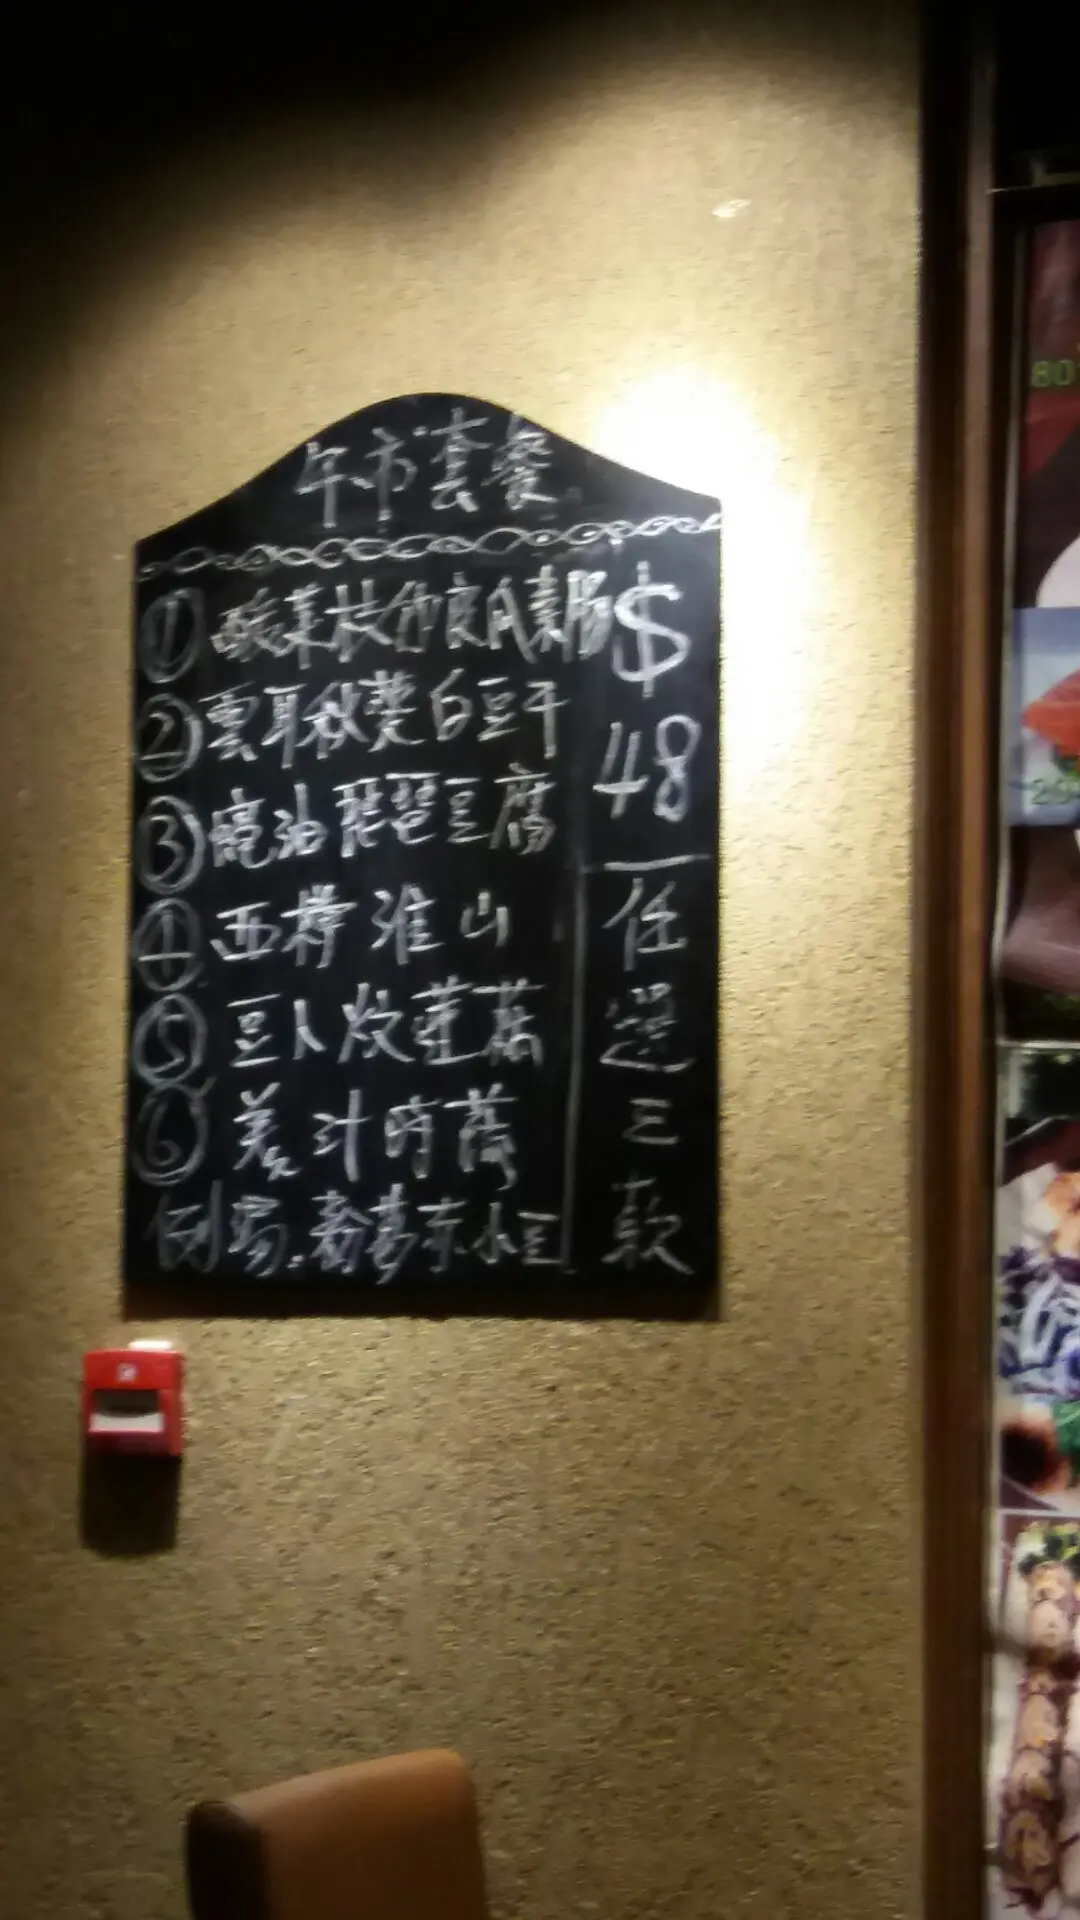 午市套餐
① 酸菜枝竹涼瓜素腸
② 雲耳秋葵白豆干
③ 蠔油琵琶豆腐
④ 西檸淮山
⑤ 豆人炆蓮藕
⑥ 羌汁時蔬
例湯.粉葛赤小豆
$
48
任
選
三
款
80